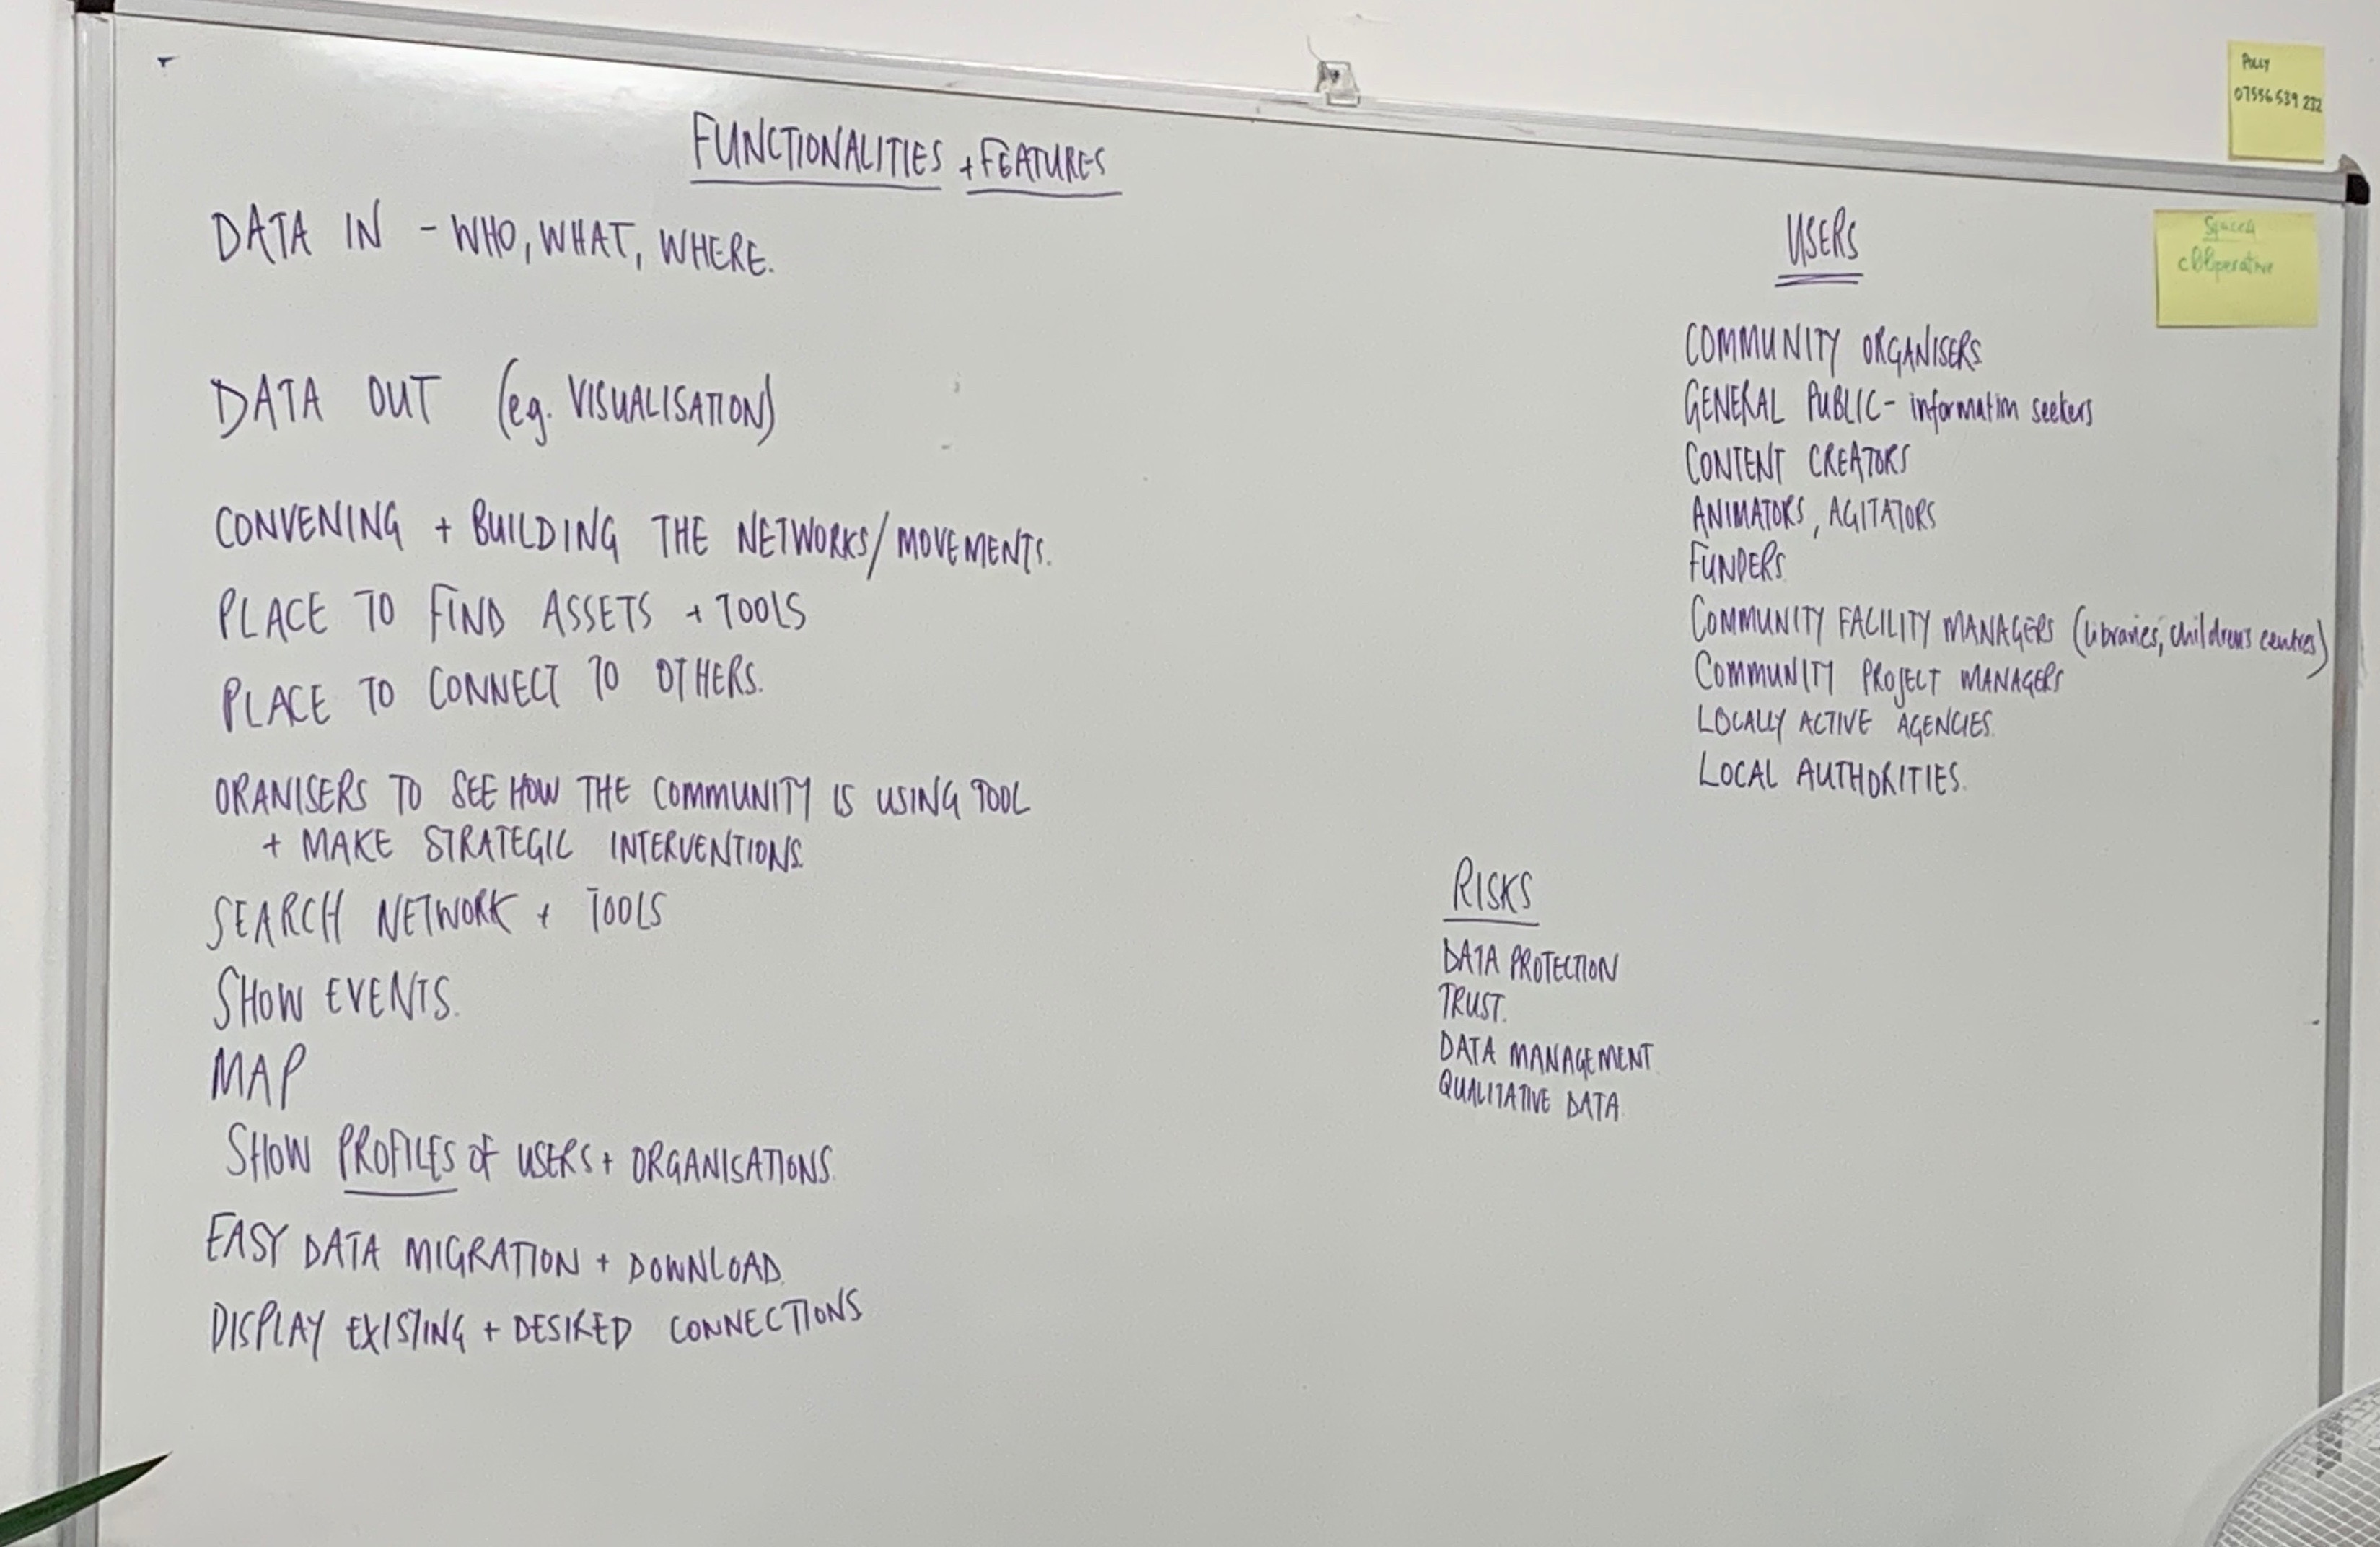 FUNCTIONALITIES + FEATURES
DATA IN - WHO, WHAT, WHERE.
DATA OUT (eg. VISUALISATION)
CONVENING + BUILDING THE NETWORKS/MOVEMENTS.
PLACE TO FIND ASSETS + TOOLS
PLACE TO CONNECT TO OTHERS.
ORANISERS TO SEE HOW THE COMMUNITY IS USING TOOL
+ MAKE STRATEGIC INTERVENTIONS.
SEARCH NETWORK + TOOLS
SHOW EVENTS.
MAP
SHOW PROFILES OF USERS + ORGANISATIONS.
EASY DATA MIGRATION + DOWNLOAD.
DISPLAY EXISTING + DESIRED CONNECTIONS
USERS
COMMUNITY ORGANISERS
GENERAL PUBLIC - information seekers
CONTENT CREATORS
ANIMATORS, AGITATORS
FUNDERS
COMMUNITY FACILITY MANAGERS (libraries, childrens centres)
COMMUNITY PROJECT MANAGERS
LOCALLY ACTIVE AGENCIES.
LOCAL AUTHORITIES.
RISKS
DATA PROTECTION
TRUST.
DATA MANAGEMENT
QUALITATIVE DATA
POLLY
07556 539 232